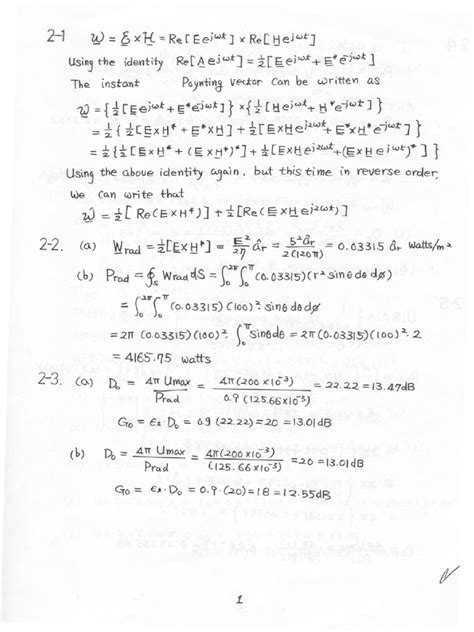 2-1 𝒲 = ℰ × ℋ = Re[E e^jωt] × Re[H e^jωt]
Using the identity Re[A e^jωt] = ½[E e^jωt + E* e^-jωt]
The instant Poynting vector can be written as
𝒲 = {½[E e^jωt + E* e^-jωt]} × {½[H e^jωt + H* e^-jωt]}
= ½{½[E×H* + E*×H] + ½[E×H e^j2ωt + E*×H* e^-j2ωt]}
= ½{½[E×H* + (E×H*)*] + ½[E×H e^j2ωt + (E×H e^j2ωt)*]}
Using the above identity again, but this time in reverse order,
we can write that
𝒲 = ½[Re(E×H*)] + ½[Re(E×H e^j2ωt)]
2-2. (a) Wrad = ½[E×H*] = E²/2η âr = 5² âr/2(120π) = 0.03315 âr Watts/m²
(b) Prad = ∮s Wrad dS = ∫₀^2π ∫₀^π (0.03315)(r² sinθ dθ dø)
= ∫₀^2π ∫₀^π (0.03315)(100)² · sinθ dθ dø
= 2π (0.03315)(100)² · ∫₀^π sinθ dθ = 2π (0.03315)(100)² · 2
= 4165.75 watts
2-3. (a) D₀ = 4π Umax/Prad = 4π(200×10⁻³)/0.9 (125.66×10⁻³) = 22.22 = 13.47dB
G₀ = εt · D₀ = 0.9 (22.22) = 20 = 13.01dB
(b) D₀ = 4π Umax/Prad = 4π(200×10⁻³)/(125.66×10⁻³) = 20 = 13.01dB
G₀ = εt · D₀ = 0.9 · (20) = 18 = 12.55dB
1